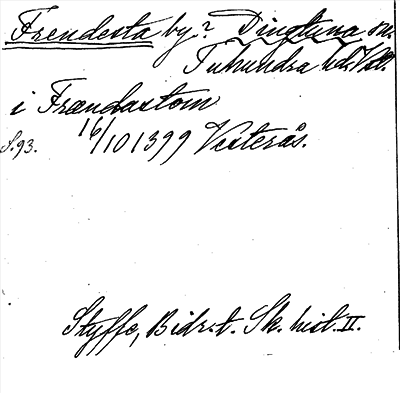 Frendesta by? Dingtuna sn.
Tuhundra hd. Vstl.
i Frændastom
S. 93. 16/10 1399 Vesterås.
Styffe, Bidr. t. Sk. hist. II.